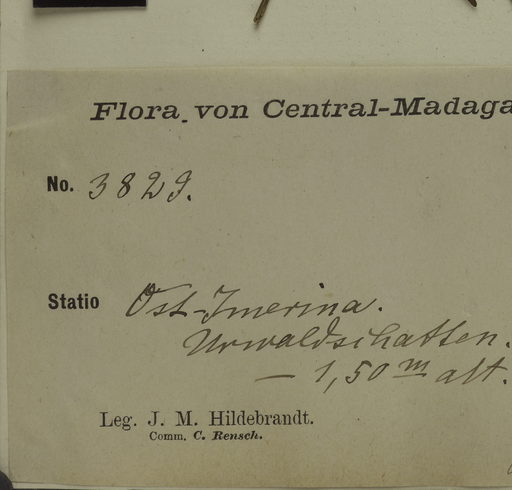 Flora von Central-Madaga
No. 3829.
Statio Ost-Imerina.
Urwaldschatten.
— 1,50 m alt.
Leg. J. M. Hildebrandt.
Comm. C. Rensch.